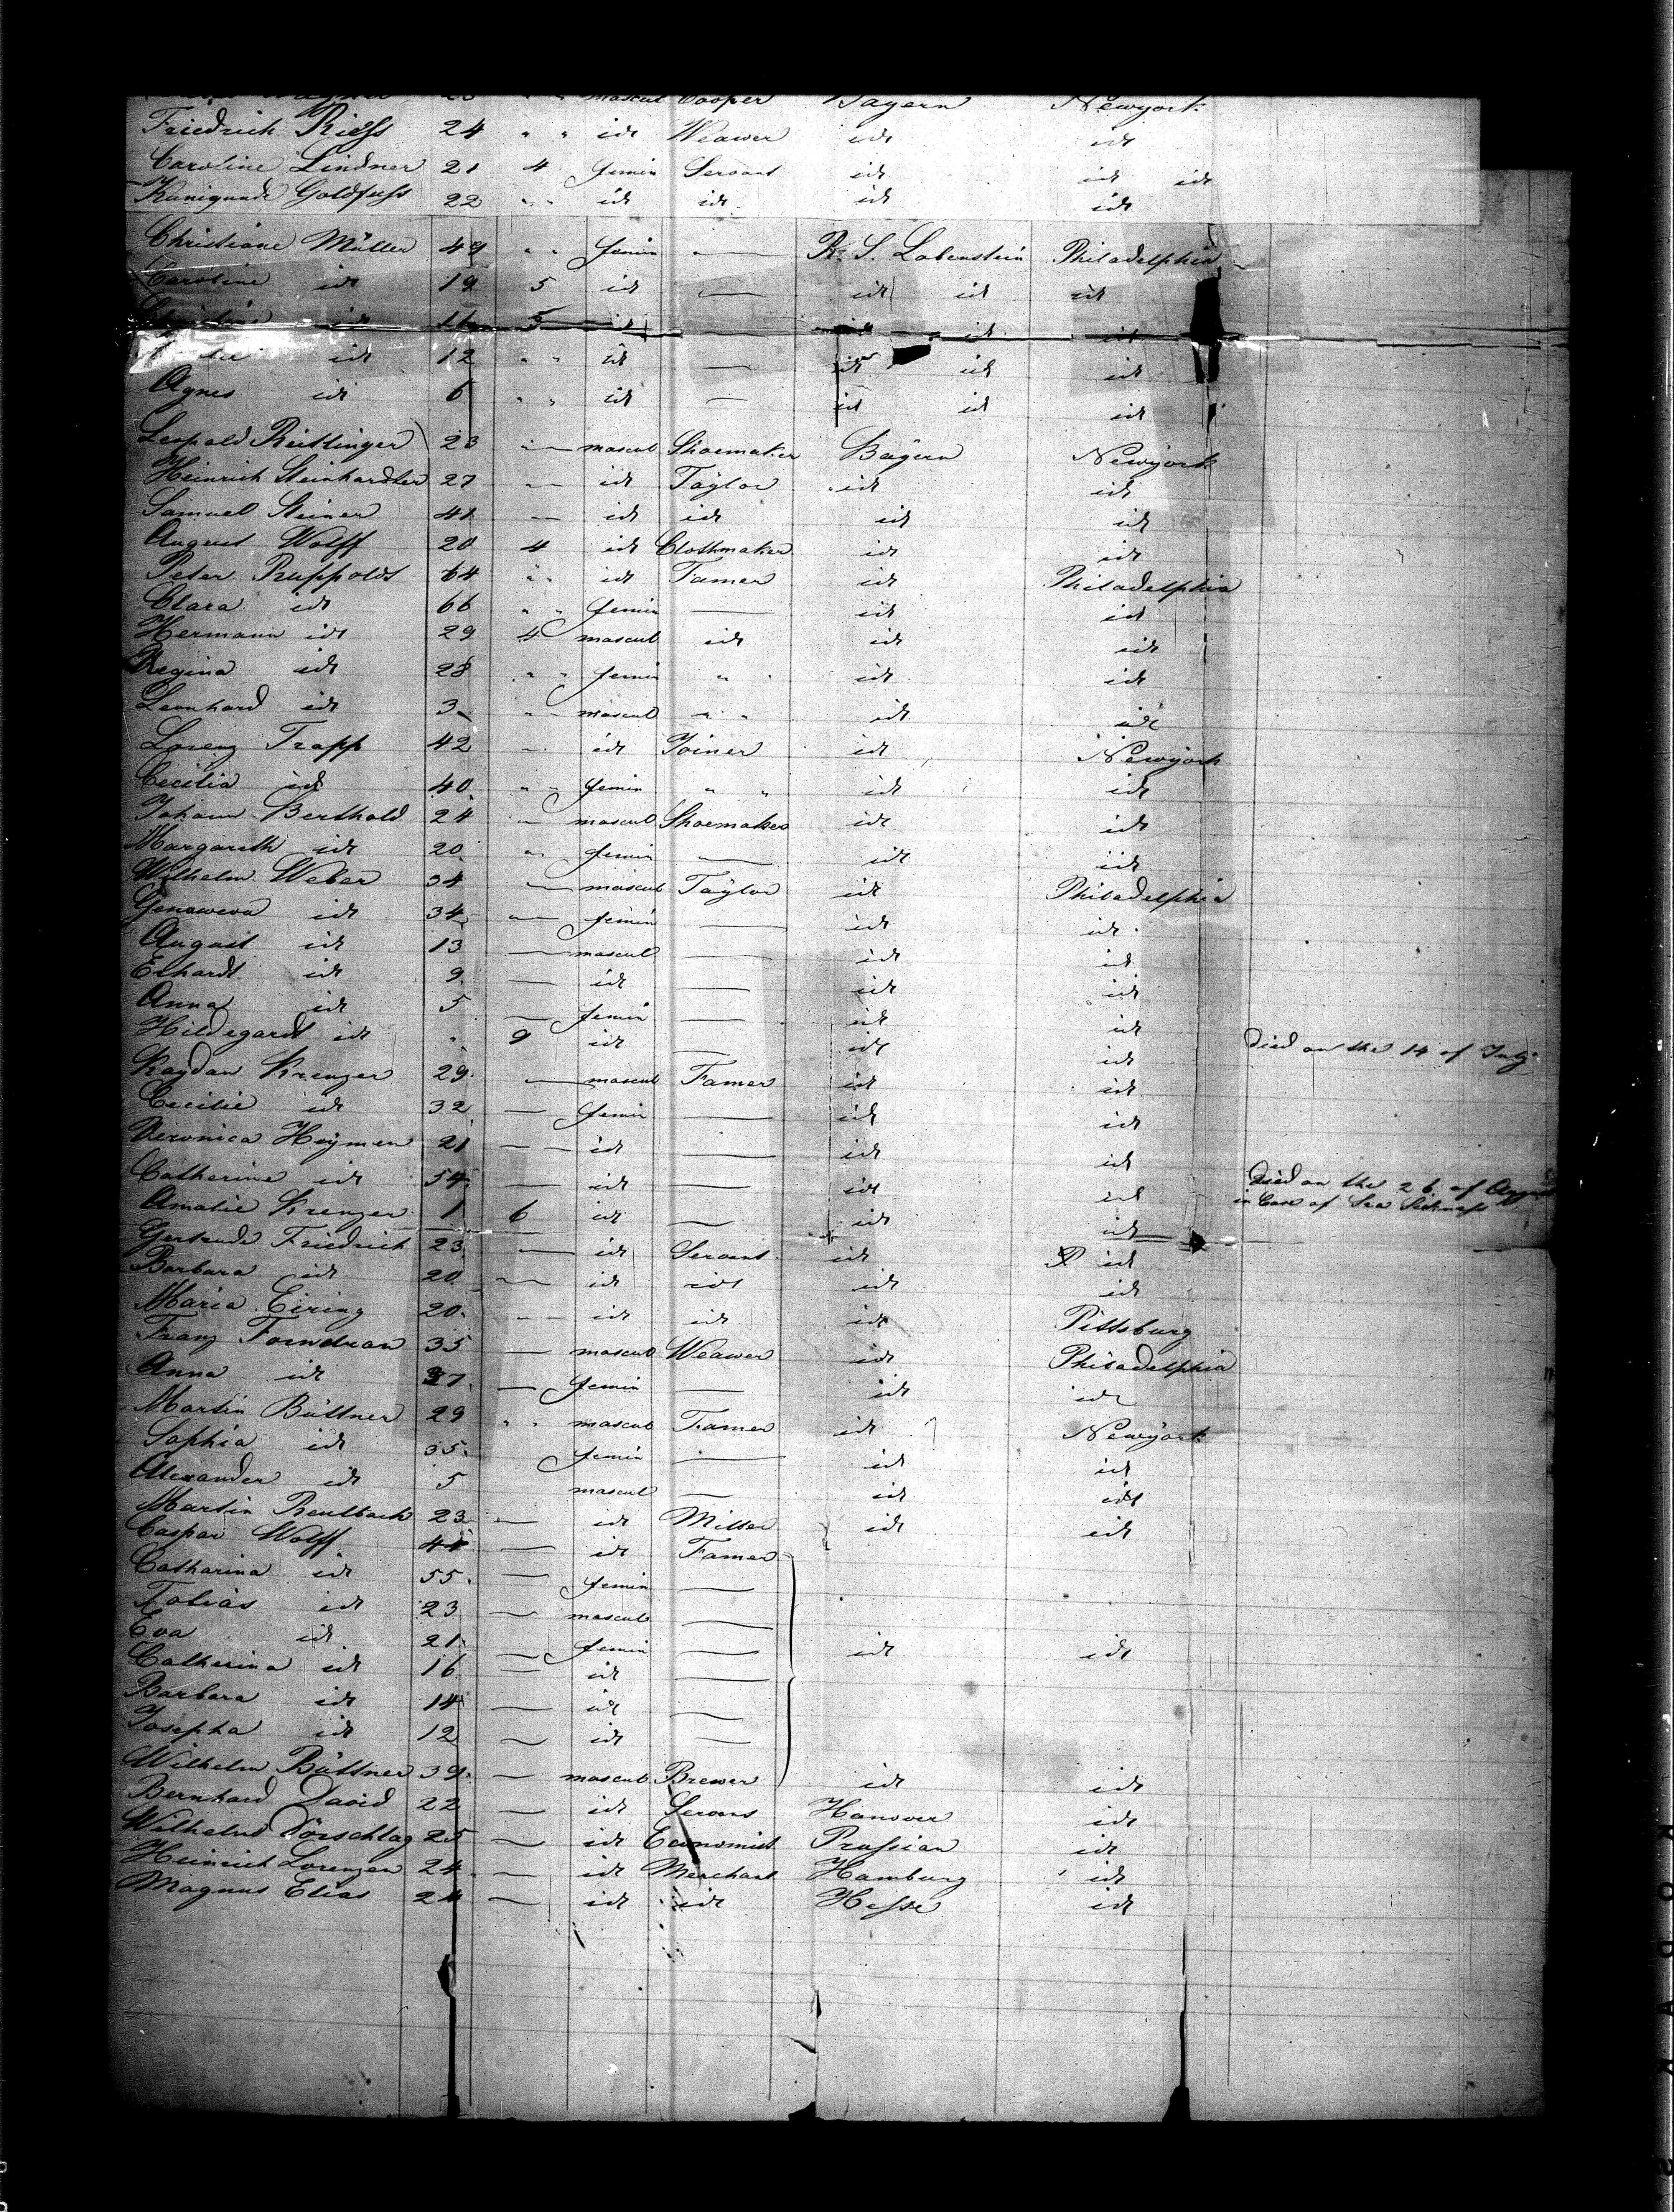 mascul Cooper Bayern Newyork
Friedrich Riess 24 " " idt Weawer idt idt
Caroline Lindner 21 4 femin Servant idt idt idt
Kunigunde Goldfuss 22 " " idt idt idt idt
Christiane Müller 49 " " femin — R. S. Lobenstein Philadelphia
Caroline idt 19 5 idt — idt idt idt
idt 5 idt — idt idt idt
idt 12 " " idt — idt idt idt
Agnes idt 6 " " idt — idt idt idt
Leopold Reitlinger 23 — mascul Shoemaker Bayern Newyork
Heinrich Steinhardter 27 — idt Taylor idt idt
Samuel Steiner 41 — idt idt idt idt
August Wolff 20 4 idt Clothmaker idt idt
Peter Ruppoldt 64 " " idt Famer idt Philadelphia
Clara idt 66 " " femin — idt idt
Hermann idt 29 4 mascul idt idt idt
Regina idt 28 " " femin " " idt idt
Leonhard idt 3 " " mascul " " idt idt
Lorenz Trapp 42 " idt Joiner idt Newyork
Cecilia idt 40 " " femin " " idt idt
Johann Berthold 24 — mascul Shoemaker idt idt
Margareth idt 20 " femin — idt idt
Wilhelm Weber 34 — mascul Taylor idt Philadelphia
Genoweva idt 34 — femin — idt idt
August idt 13 — mascul — idt idt
Erhardt idt 9 — idt — idt idt
Anna idt 5 — femin — idt idt
Hildegardt idt " 9 idt — idt idt Died on the 14 of July
Kregzer 29 — mascul Famer idt idt
Cecilie idt 32 — femin — idt idt
Veronica Heymen 21 — idt — idt idt
Catherine idt 54 — idt — idt idt Died on the 26 of August
in Case of Sea Sickness
Amalie Krenzer 1 6 idt — idt idt
Gertrude Friedrich 23 — idt Servant idt idt
Barbara idt 20 — idt idt idt idt
Maria Eiring 20 — idt idt idt Pittsburg
Franz Forndran 35 — mascul Weawer idt Philadelphia
Anna idt 37 — femin — idt idt
Martin Büttner 29 " " mascul Framer idt Newyork
Sophia idt 35 femin — idt idt
Alexander idt 5 mascul — idt idt
Martin Reulbach 23 — idt Miller idt idt
Caspar Wolff 44 — idt Famer
Catharina idt 55 — femin —
Tobias idt 23 — mascul —
Eva idt 21 — femin — idt idt
Catherina idt 16 — idt —
Barbara idt 14 — idt —
Josepha idt 12 — idt —
Wilhelm Büttner 39 — mascul Brewer idt idt
Bernhard David 22 — idt Servant Hanover idt
Wilhelm Dörschlag 25 — idt Economist Prussian idt
Heinrich Lorenzen 24 — idt Merchant Hamburg idt
Magnus Elias 24 — idt idt Hesse idt